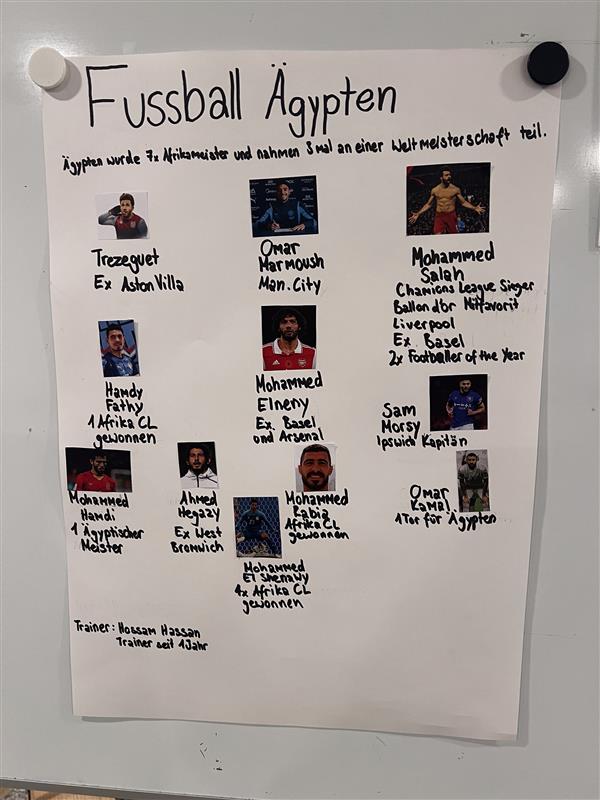 Fussball Ägypten
Ägypten wurde 7x Afrikameister und nahmen 3 mal an einer Weltmeisterschaft teil.
Trezeguet
Ex Aston Villa
Omar
Marmoush
Man. City
Mohammed
Salah
Chamions League Sieger
Ballon d'or Mitfavorit
Liverpool
Ex Basel
2x Footballer of the Year
Hamdy
Fathy
1 Afrika CL
gewonnen
Mohammed
Elneny
Ex. Basel
und Arsenal
Sam
Morsy
Ipswich Kapitän
Mohammed
Hamdi
1 Ägyptischer
Meister
Ahmed
Hegazy
Ex West
Bromwich
Mohammed
El Shenawy
4x Afrika CL
gewonnen
Mohammed
Rabia
Afrika CL
gewonnen
Omar
Kamal
1 Tor für Ägypten
Trainer: Hossam Hassan
Trainer seit 1 Jahr